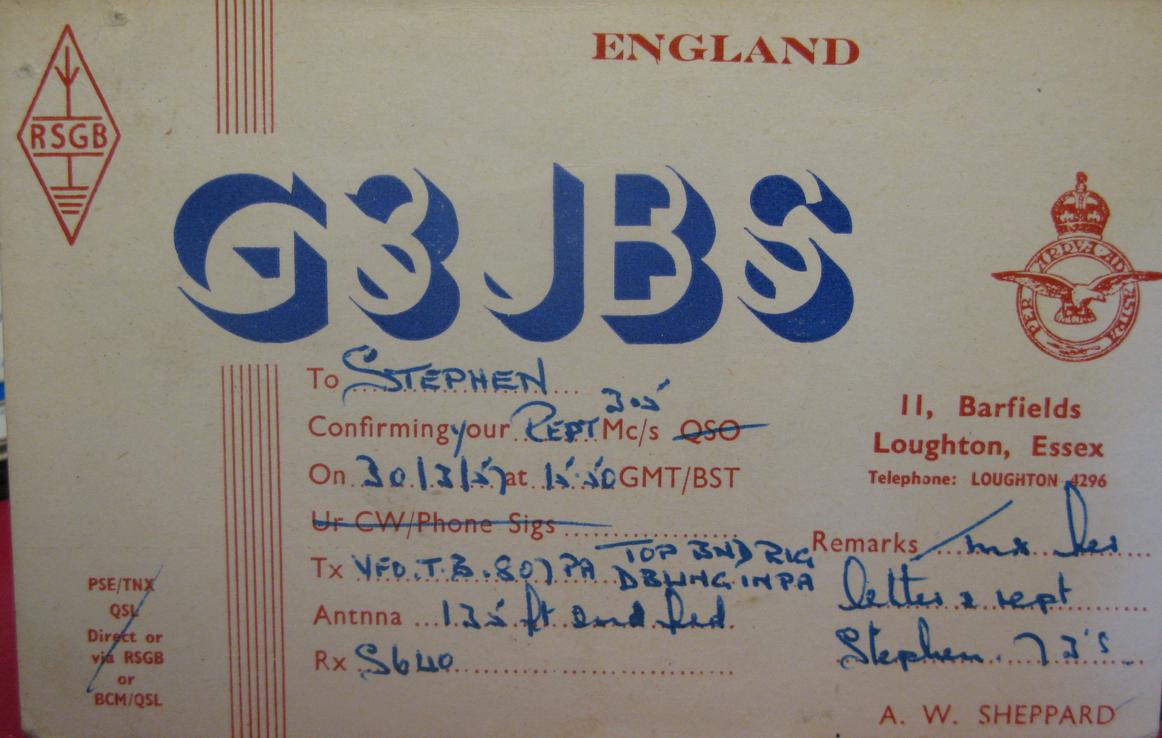 ENGLAND
RSGB
G3JBS
PER ARDVA AD ASTRA
To STEPHEN
3.5
Confirming your REPT Mc/s QSO
On 30/3/57 at 15.50 GMT/BST
Ur CW/Phone Sigs
Tx VFO.T.B.807 PA TOP BND RIG
DBLING IN PA
Antnna 135 ft end fed.
Rx S640
11, Barfields
Loughton, Essex
Telephone: LOUGHTON 4296
Remarks Tnx les
letter & rept
Stephen. 73's
A. W. SHEPPARD
PSE/TNX
QSL
Direct or
via RSGB
or
BCM/QSL